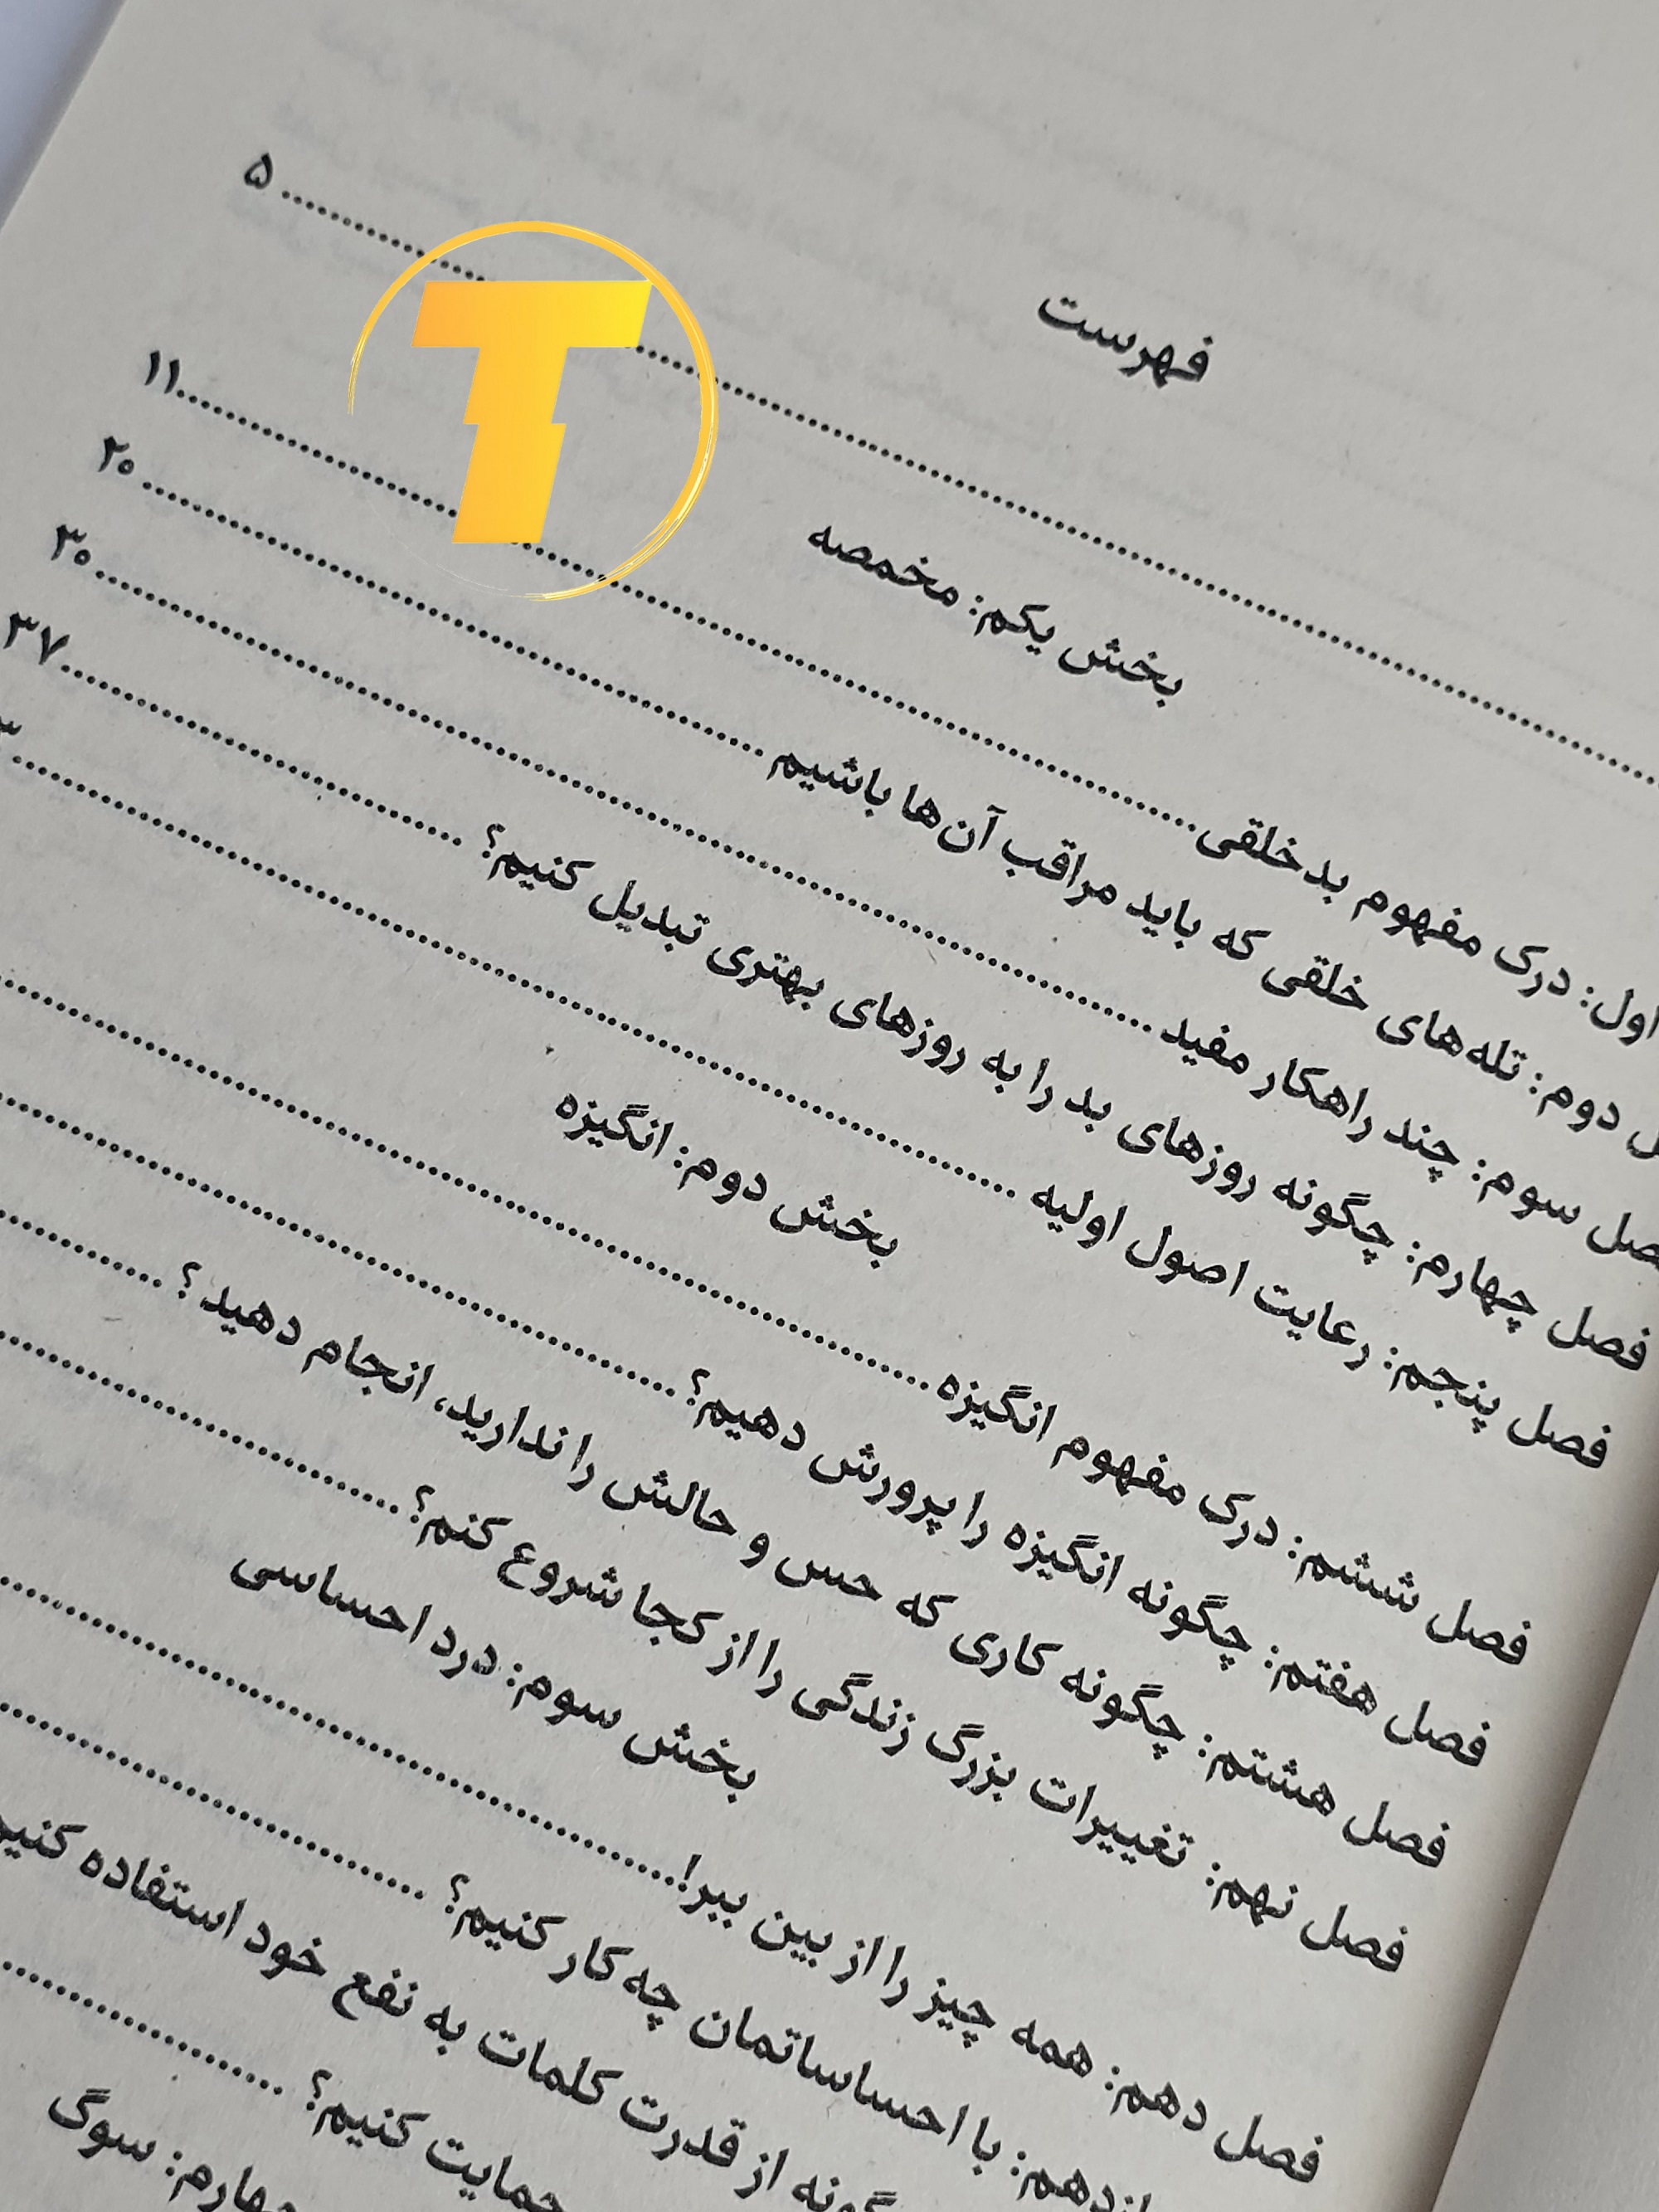 فهرست
............ ۵
بخش یکم: مخمصه
اول: درک مفهوم بدخلقی ............ ۱۱
دوم: تله‌های خلقی که باید مراقب آن‌ها باشیم ............ ۲۰
فصل سوم: چند راهکار مفید ............ ۳۰
فصل چهارم: چگونه روزهای بد را به روزهای بهتری تبدیل کنیم؟ ............ ۳۷
فصل پنجم: رعایت اصول اولیه ............
بخش دوم: انگیزه
فصل ششم: درک مفهوم انگیزه ............
فصل هفتم: چگونه انگیزه را پرورش دهیم؟ ............
فصل هشتم: چگونه کاری که حس و حالش را ندارید، انجام دهید؟ ............
فصل نهم: تغییرات بزرگ زندگی را از کجا شروع کنم؟ ............
بخش سوم: درد احساسی
فصل دهم: همه چیز را از بین ببر! ............
با احساساتمان چه کار کنیم؟ ............
از قدرت کلمات به نفع خود استفاده کنیم
حمایت کنیم؟ ............
چهارم: سوگ
T